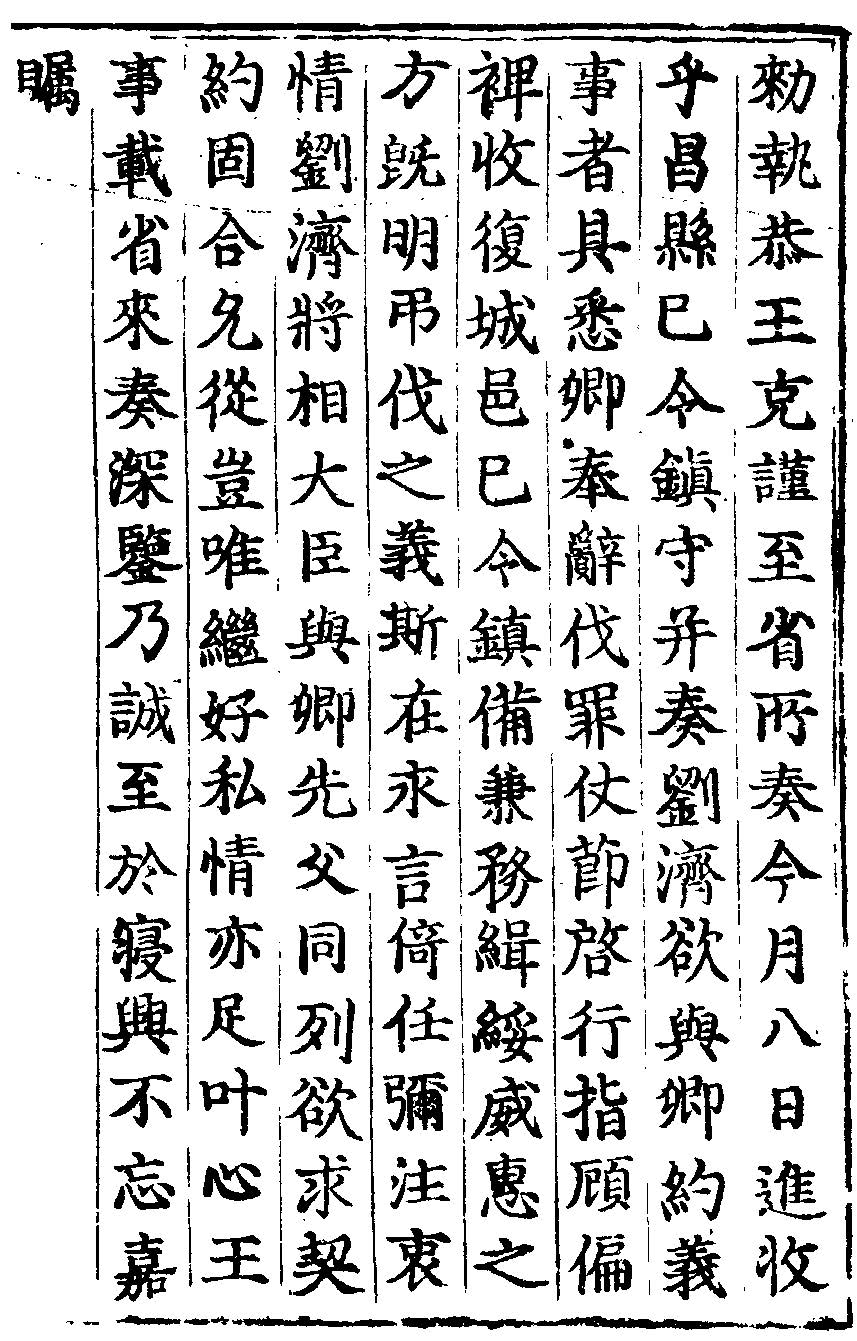 勑執恭王克謹至省所奏今月八日進收
乎昌縣已令鎮守并奏劉濟欲與卿約義
事者具悉卿奉辭伐罪仗節啓行指顧偏
裨收復城邑已令鎮備兼務緝綏威惠之
方旣明弔伐之義斯在永言倚任彌注衷
情劉濟將相大臣與卿先父同列欲求契
約固合允從豈唯繼好私情亦足叶心王
事載省來奏深鑒乃誠至於寝興不忘嘉
矚